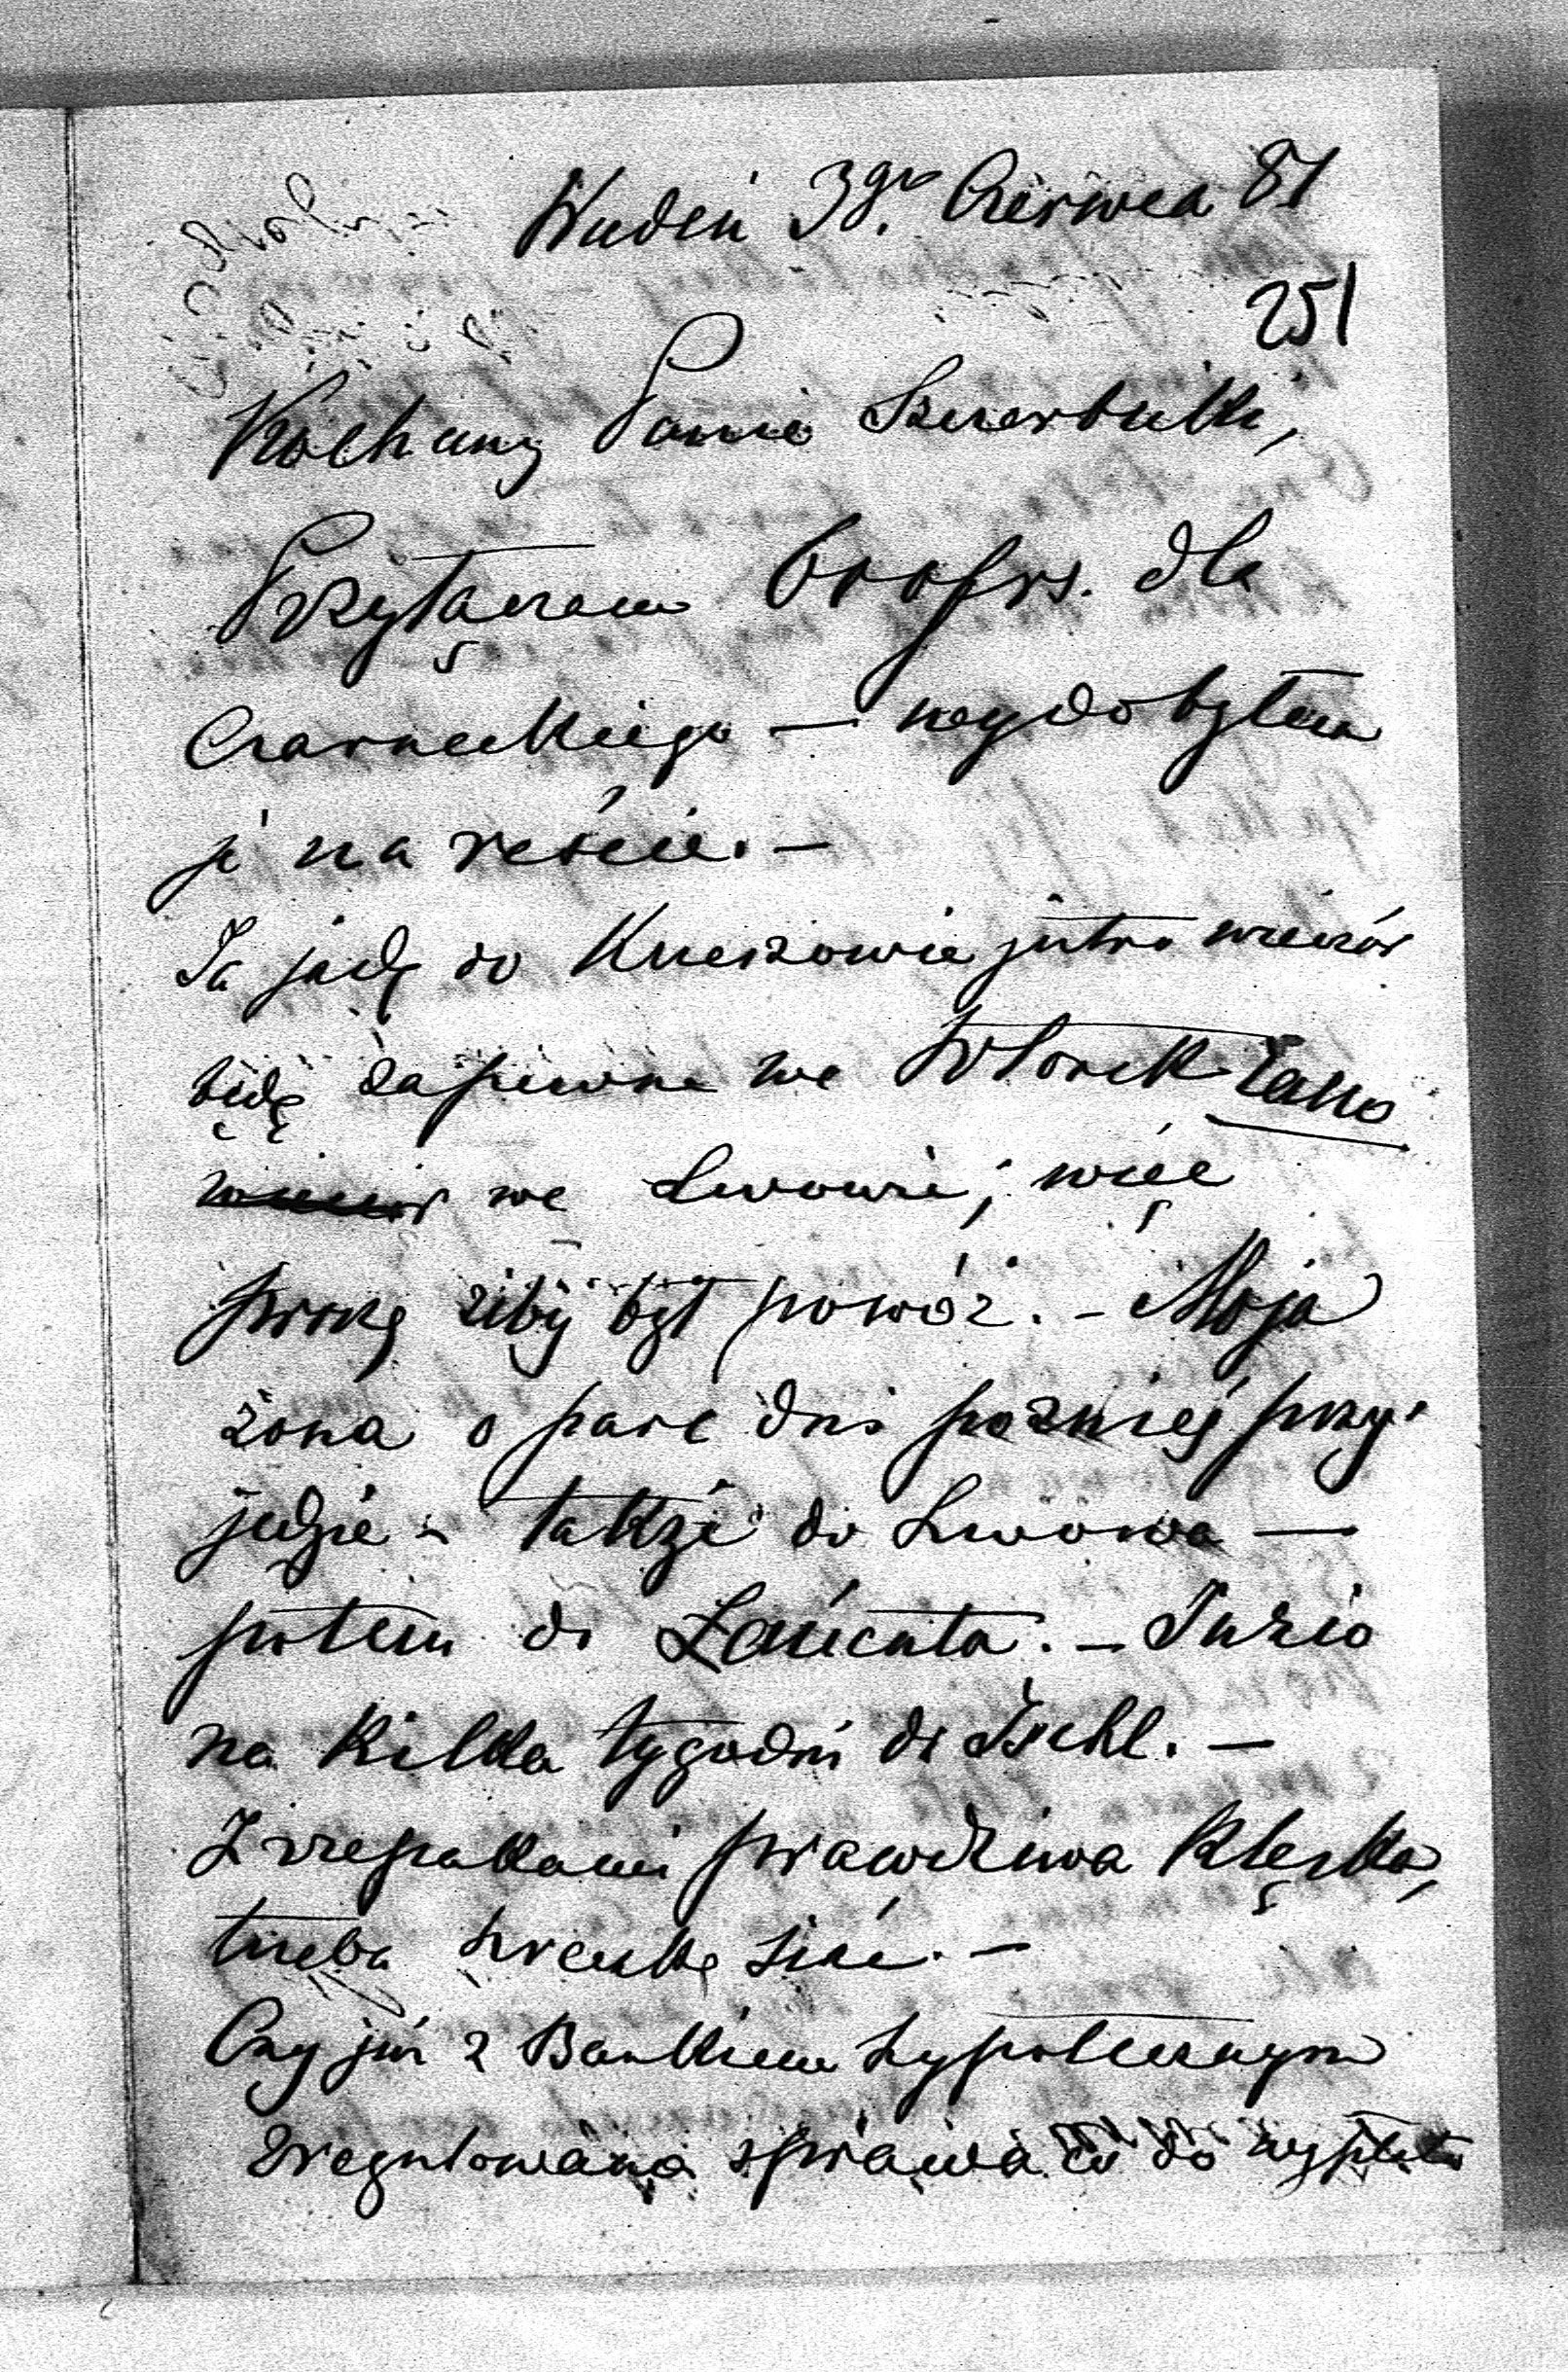 Wiedeń 3go. Czerwca 81
251
Kochany Panie Szczerbicki,
Przyłączam 600 frs. dla
Czarneckiego — wydobyłem
je na reście. —
Ja jadę do Krzeszowic jutro wieczór
będę zapewne we Wtorek rano
we Lwowie; więc
proszę żeby był powóz. — Moja
żona o parę dni pozniej przy-
jedzie – także do Lwowa —
potem do Łańcuta. — Juzio
na kilka tygodni do Ischl. —
Z rzepakami prawdziwa klęska,
trzeba hreczkę siać. —
Czy już z Bankiem hypotecznym
zregulowana sprawa co do wypłat